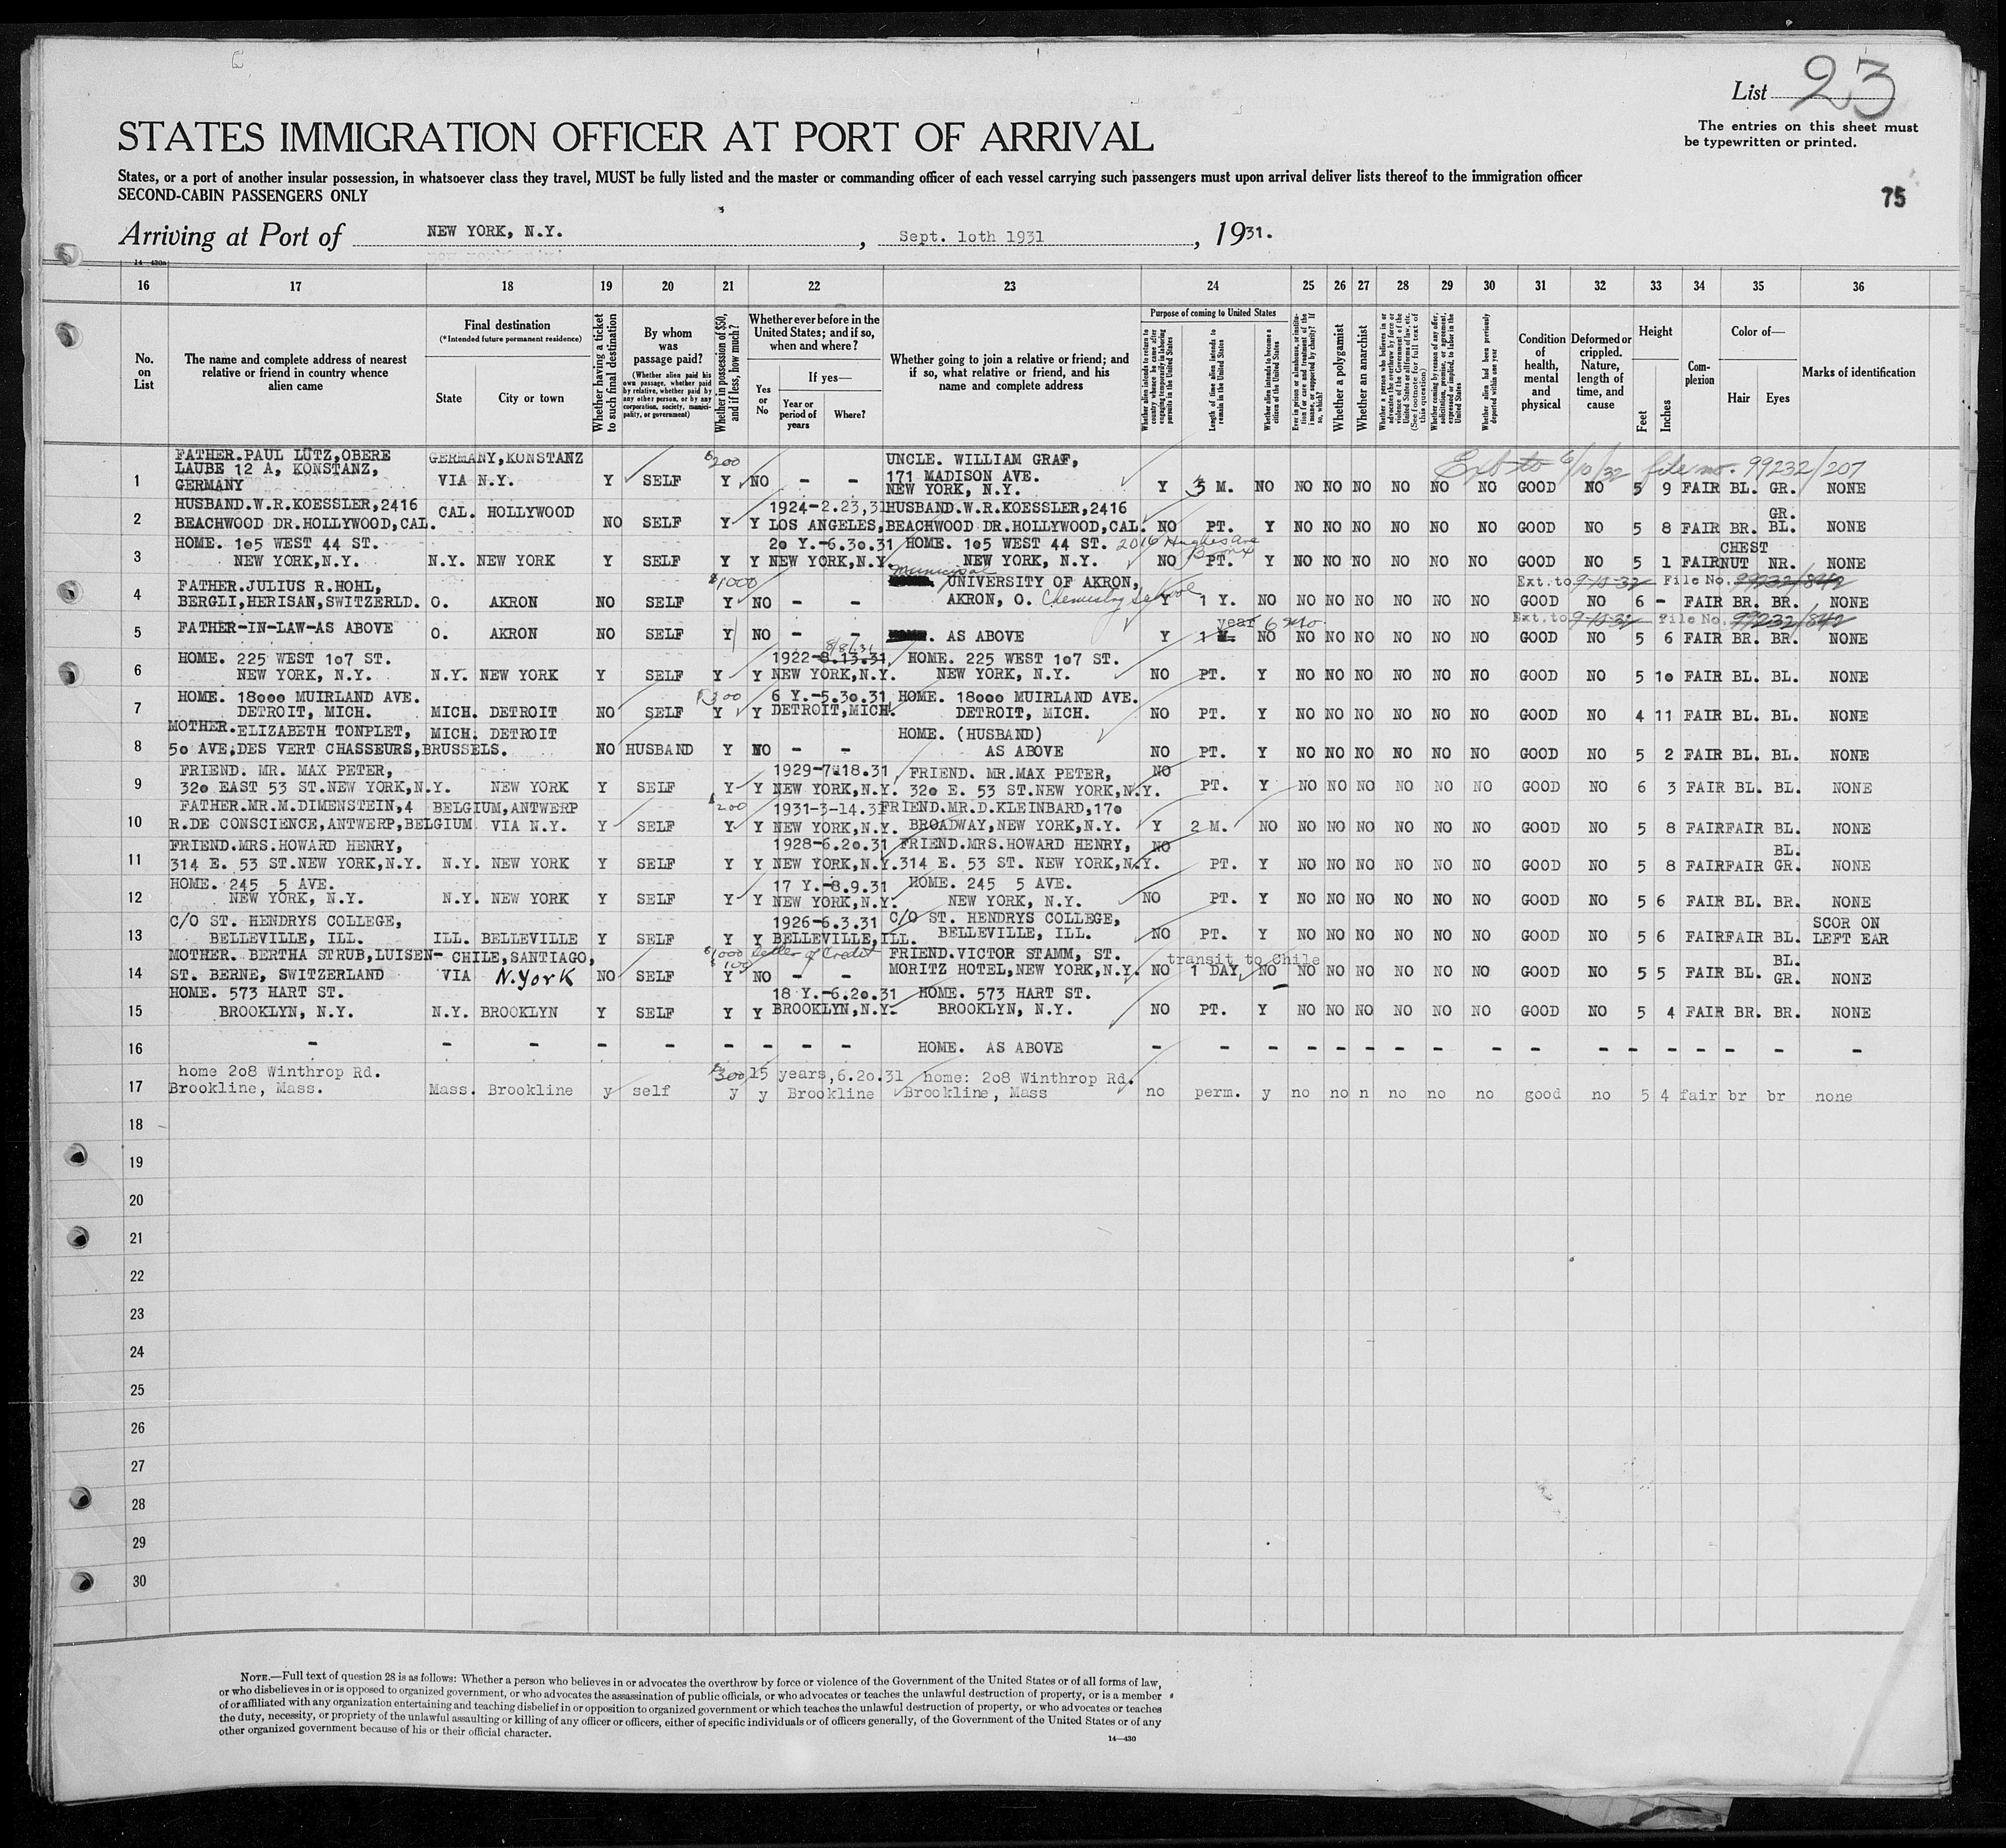 List 23
The entries on this sheet must
be typewritten or printed.
STATES IMMIGRATION OFFICER AT PORT OF ARRIVAL
States, or a port of another insular possession, in whatsoever class they travel, MUST be fully listed and the master or commanding officer of each vessel carrying such passengers must upon arrival deliver lists thereof to the immigration officer
SECOND-CABIN PASSENGERS ONLY
75
Arriving at Port of NEW YORK, N.Y. , Sept. 1oth 1931 , 1931.
14—430a
16 17 18 19 20 21 22 23 24 25 26 27 28 29 30 31 32 33 34 35 36
No. on List
The name and complete address of nearest relative or friend in country whence alien came
Final destination
(*Intended future permanent residence)
State
City or town
Whether having a ticket to such final destination
By whom was passage paid?
(Whether alien paid his own passage, whether paid by relative, whether paid by any other person, or by any corporation, society, municipality, or government)
Whether in possession of $50, and if less, how much?
Whether ever before in the United States; and if so, when and where?
Yes or No
If yes—
Year or period of years
Where?
Whether going to join a relative or friend; and if so, what relative or friend, and his name and complete address
Purpose of coming to United States
Whether alien intends to return to country whence he came after engaging temporarily in laboring pursuits in the United States
Length of time alien intends to remain in the United States
Whether alien intends to become a citizen of the United States
Ever in prison or almshouse, or institution for care and treatment of the insane, or supported by charity? If so, which?
Whether a polygamist
Whether an anarchist
Whether a person who believes in or advocates the overthrow by force or violence of the Government of the United States or all forms of law, etc. (See footnote for full text of this question)
Whether coming by reason of any offer, solicitation, promise, or agreement, expressed or implied, to labor in the United States
Whether alien had been previously deported within one year
Condition of health, mental and physical
Deformed or crippled. Nature, length of time, and cause
Height
Feet
Inches
Complexion
Color of—
Hair
Eyes
Marks of identification
FATHER.PAUL LUTZ,OBERE GERMANY,KONSTANZ $200 UNCLE. WILLIAM GRAF, Ext to 6/10/32 file no. 99232/207
1 LAUBE 12 A, KONSTANZ, VIA N.Y. Y SELF Y NO - - 171 MADISON AVE.
GERMANY NEW YORK, N.Y. Y 3 M. NO NO NO NO NO NO NO GOOD NO 5 9 FAIR BL. GR. NONE
HUSBAND.W.R.KOESSLER,2416 CAL. HOLLYWOOD 1924-2.23,31 HUSBAND.W.R.KOESSLER,2416 GR.
2 BEACHWOOD DR.HOLLYWOOD,CAL. NO SELF Y Y LOS ANGELES, BEACHWOOD DR.HOLLYWOOD,CAL. NO PT. Y NO NO NO NO NO NO GOOD NO 5 8 FAIR BR. BL. NONE
HOME. 1o5 WEST 44 ST. 2o Y.-6.3o.31 HOME. 1o5 WEST 44 ST. 2016 Hughes Ave Bronx CHEST
3 NEW YORK,N.Y. N.Y. NEW YORK Y SELF Y Y NEW YORK,N.Y. NEW YORK, N.Y. NO PT. Y NO NO NO NO NO NO GOOD NO 5 1 FAIR NUT NR. NONE
FATHER.JULIUS R.HOHL, $1000 Municipal UNIVERSITY OF AKRON, Ext. to 9-10-32 File No. 99232/842
4 BERGLI,HERISAN,SWITZERLD. O. AKRON NO SELF Y NO - - AKRON, O. Chemistry School Y 1 Y. NO NO NO NO NO NO NO GOOD NO 6 - FAIR BR. BR. NONE
year 6 mo. Ext. to 9-10-32 File No. 99232/842
5 FATHER-IN-LAW-AS ABOVE O. AKRON NO SELF Y NO - - . AS ABOVE Y 1 NO NO NO NO NO NO NO GOOD NO 5 6 FAIR BR. BR. NONE
HOME. 225 WEST 1o7 ST. 8/8/31 1922-8.13.31 HOME. 225 WEST 1o7 ST.
6 NEW YORK, N.Y. N.Y. NEW YORK Y SELF Y Y NEW YORK,N.Y. NEW YORK, N.Y. NO PT. Y NO NO NO NO NO NO GOOD NO 5 1o FAIR BL. BL. NONE
HOME. 18ooo MUIRLAND AVE. $300 6 Y.-5.3o.31 HOME. 18ooo MUIRLAND AVE.
7 DETROIT, MICH. MICH. DETROIT NO SELF Y Y DETROIT,MICH. DETROIT, MICH. NO PT. Y NO NO NO NO NO NO GOOD NO 4 11 FAIR BL. BL. NONE
MOTHER.ELIZABETH TONPLET, MICH. DETROIT HOME. (HUSBAND)
8 5o AVE.DES VERT CHASSEURS,BRUSSELS. NO HUSBAND Y NO - - AS ABOVE NO PT. Y NO NO NO NO NO NO GOOD NO 5 2 FAIR BL. BL. NONE
FRIEND. MR. MAX PETER, 1929-7.18.31 FRIEND. MR.MAX PETER, NO
9 32o EAST 53 ST.NEW YORK,N.Y. NEW YORK Y SELF Y Y NEW YORK,N.Y. 32o E. 53 ST.NEW YORK,N.Y. PT. Y NO NO NO NO NO NO GOOD NO 6 3 FAIR BL. BL. NONE
FATHER.MR.M.DIMENSTEIN,4 BELGIUM,ANTWERP $200 1931-3-14.31 FRIEND.MR.D.KLEINBARD,17o
10 R.DE CONSCIENCE,ANTWERP,BELGIUM VIA N.Y. Y SELF Y Y NEW YORK,N.Y. BROADWAY,NEW YORK,N.Y. Y 2 M. NO NO NO NO NO NO NO GOOD NO 5 8 FAIR FAIR BL. NONE
FRIEND.MRS.HOWARD HENRY, 1928-6.2o.31 FRIEND.MRS.HOWARD HENRY, NO BL.
11 314 E. 53 ST.NEW YORK,N.Y. N.Y. NEW YORK Y SELF Y Y NEW YORK,N.Y. 314 E. 53 ST. NEW YORK,N.Y. PT. Y NO NO NO NO NO NO GOOD NO 5 8 FAIR FAIR GR. NONE
HOME. 245 5 AVE. 17 Y.-8.9.31 HOME. 245 5 AVE.
12 NEW YORK, N.Y. N.Y. NEW YORK Y SELF Y Y NEW YORK,N.Y. NEW YORK, N.Y. NO PT. Y NO NO NO NO NO NO GOOD NO 5 6 FAIR BL. BR. NONE
C/O ST. HENDRYS COLLEGE, 1926-6.3.31 C/O ST. HENDRYS COLLEGE, SCOR ON
13 BELLEVILLE, ILL. ILL. BELLEVILLE Y SELF Y Y BELLEVILLE,ILL. BELLEVILLE, ILL. NO PT. Y NO NO NO NO NO NO GOOD NO 5 6 FAIR FAIR BL. LEFT EAR
MOTHER. BERTHA STRUB,LUISEN- CHILE,SANTIAGO, $1000 Letter of Credit $100 FRIEND.VICTOR STAMM, ST. transit to Chile BL.
14 ST. BERNE, SWITZERLAND VIA N.York NO SELF Y NO - - MORITZ HOTEL,NEW YORK,N.Y. NO 1 DAY NO NO NO NO NO NO NO GOOD NO 5 5 FAIR BL. GR. NONE
HOME. 573 HART ST. 18 Y.-6.2o.31 HOME. 573 HART ST.
15 BROOKLYN, N.Y. N.Y. BROOKLYN Y SELF Y Y BROOKLYN,N.Y. BROOKLYN, N.Y. NO PT. Y NO NO NO NO NO NO GOOD NO 5 4 FAIR BR. BR. NONE
16 - - - - - - - - - HOME. AS ABOVE - - - - - - - - - - - - - - - - Wait
home 2o8 Winthrop Rd. $300 15 years,6.2o.31 home: 2o8 Winthrop Rd.
17 Brookline, Mass. Mass. Brookline y self y y Brookline Brookline, Mass no perm. y no no n no no no good no 5 4 fair br br none
18
19
20
21
22
23
24
25
26
27
28
29
30
NOTE.—Full text of question 28 is as follows: Whether a person who believes in or advocates the overthrow by force or violence of the Government of the United States or of all forms of law,
or who disbelieves in or is opposed to organized government, or who advocates the assassination of public officials, or who advocates or teaches the unlawful destruction of property, or is a member
of or affiliated with any organization entertaining and teaching disbelief in or opposition to organized government or which teaches the unlawful destruction of property, or who advocates or teaches
the duty, necessity, or propriety of the unlawful assaulting or killing of any officer or officers, either of specific individuals or of officers generally, of the Government of the United States or of any
other organized government because of his or their official character.
14—430